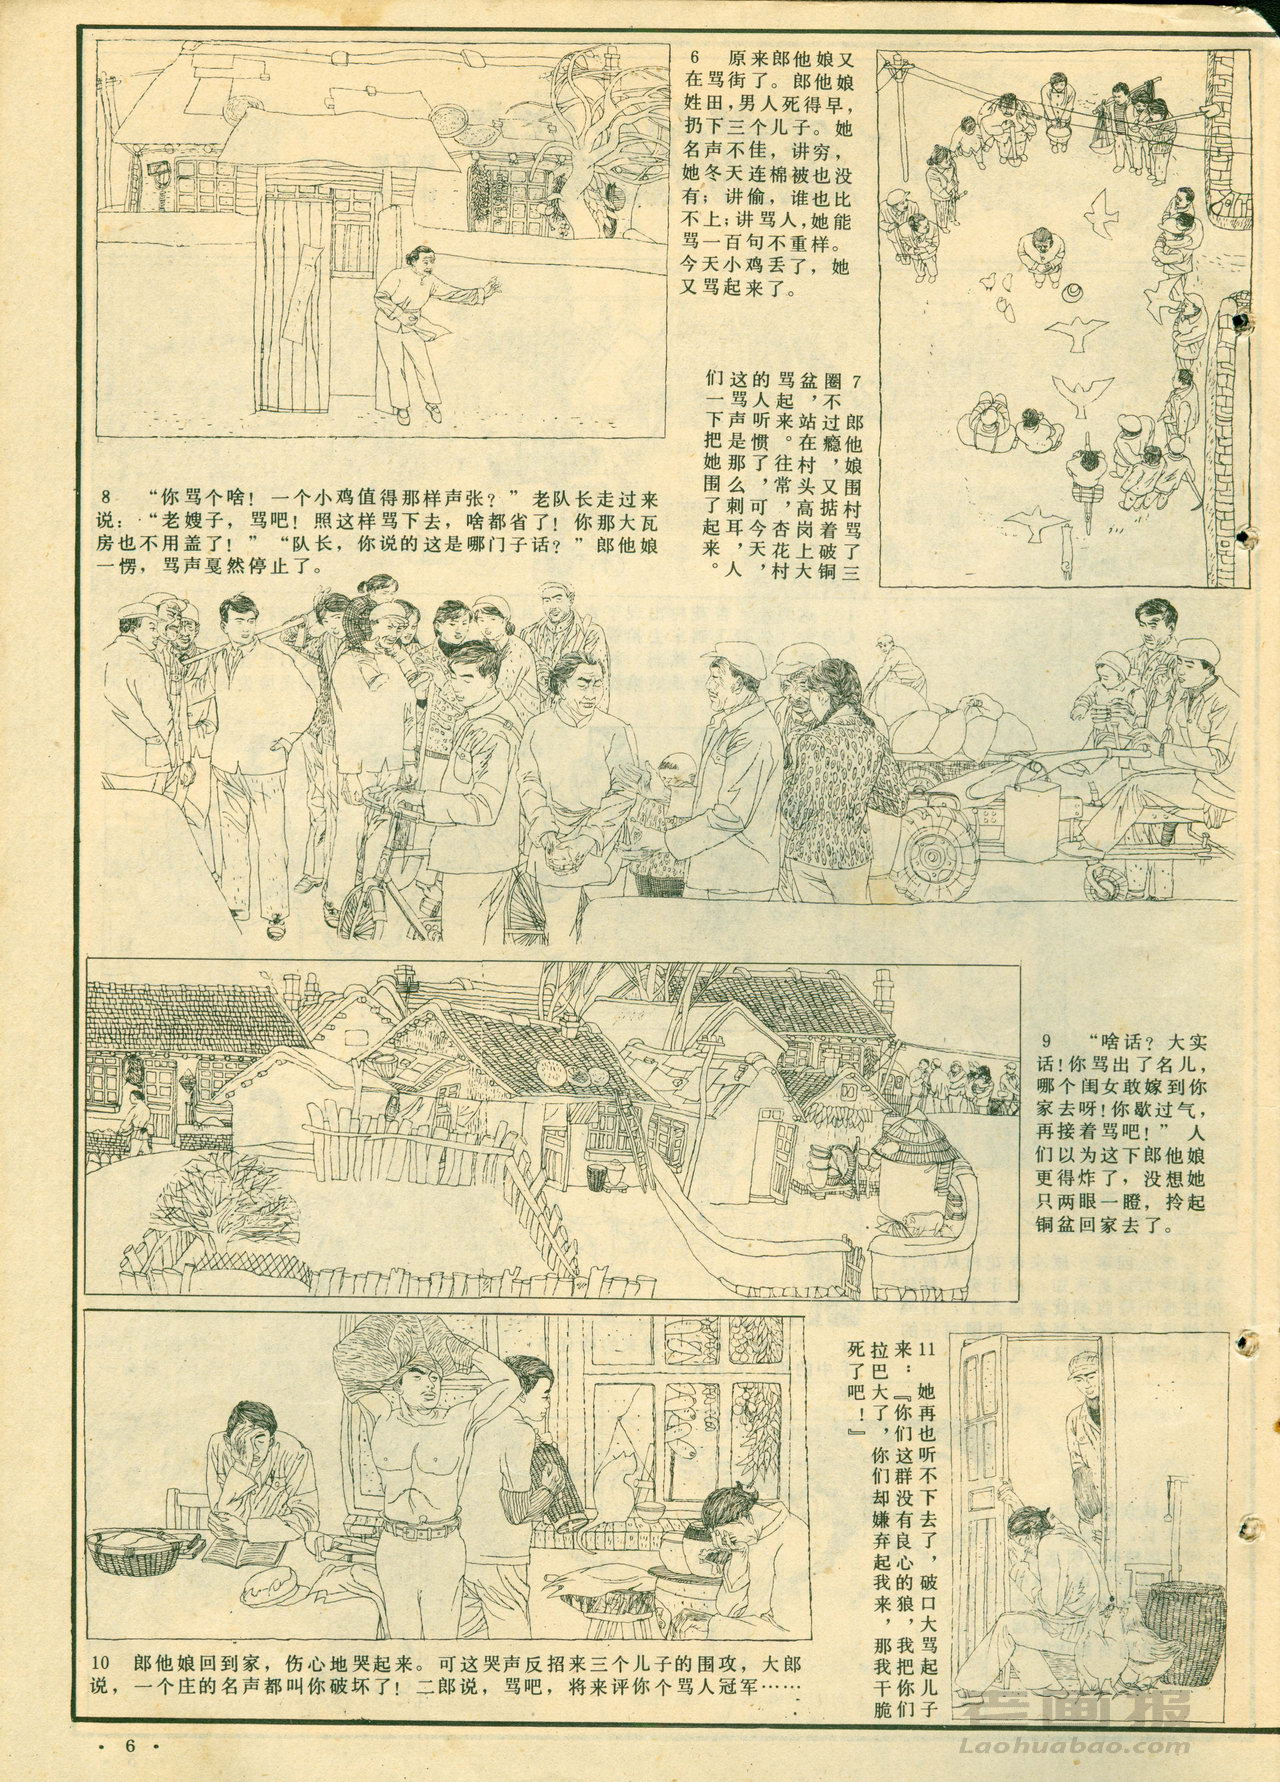 6 原来郎他娘又
在骂街了。郎他娘
姓田，男人死得早，
扔下三个儿子。她
名声不佳，讲穷，
她冬天连棉被也没
有；讲偷，谁也比
不上；讲骂人，她能
骂一百句不重样。
今天小鸡丢了，她
又骂起来了。
7 郎他娘围村骂了三
圈不过瘾，又掂着破铜
盆，站在村头高岗上大
骂起来。往常，杏花村
的人听惯了，可今天，
这骂声是那么刺耳，人
们一下把她围了起来。
8 “你骂个啥！一个小鸡值得那样声张？”老队长走过来
说：“老嫂子，骂吧！照这样骂下去，啥都省了！你那大瓦
房也不用盖了！”“队长，你说的这是哪门子话？”郎他娘
一愣，骂声戛然停止了。
9 “啥话？大实
话！你骂出了名儿，
哪个闺女敢嫁到你
家去呀！你歇过气，
再接着骂吧！”人
们以为这下郎他娘
更得炸了，没想她
只两眼一瞪，拎起
铜盆回家去了。
10 郎他娘回到家，伤心地哭起来。可这哭声反招来三个儿子的围攻，大郎
说，一个庄的名声都叫你破坏了！二郎说，骂吧，将来评你个骂人冠军……
11 她再也听不下去了，破口大骂起儿子
来：『你们这群没有良心的狼，我把你们
拉巴大了，你们却嫌弃起我来，那我干脆
死了吧！』
· 6 ·
老画报
Laohuabao.com